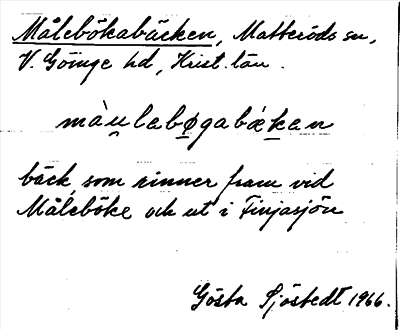 Målebökabäcken, Matteröds sn,
V. Göinge hd, Krist. län.
màu̯labø̱gabæ̀ḵan
bäck, som rinner fram vid
Måleböke och ut i Finjasjön
Gösta Sjöstedt 1966.